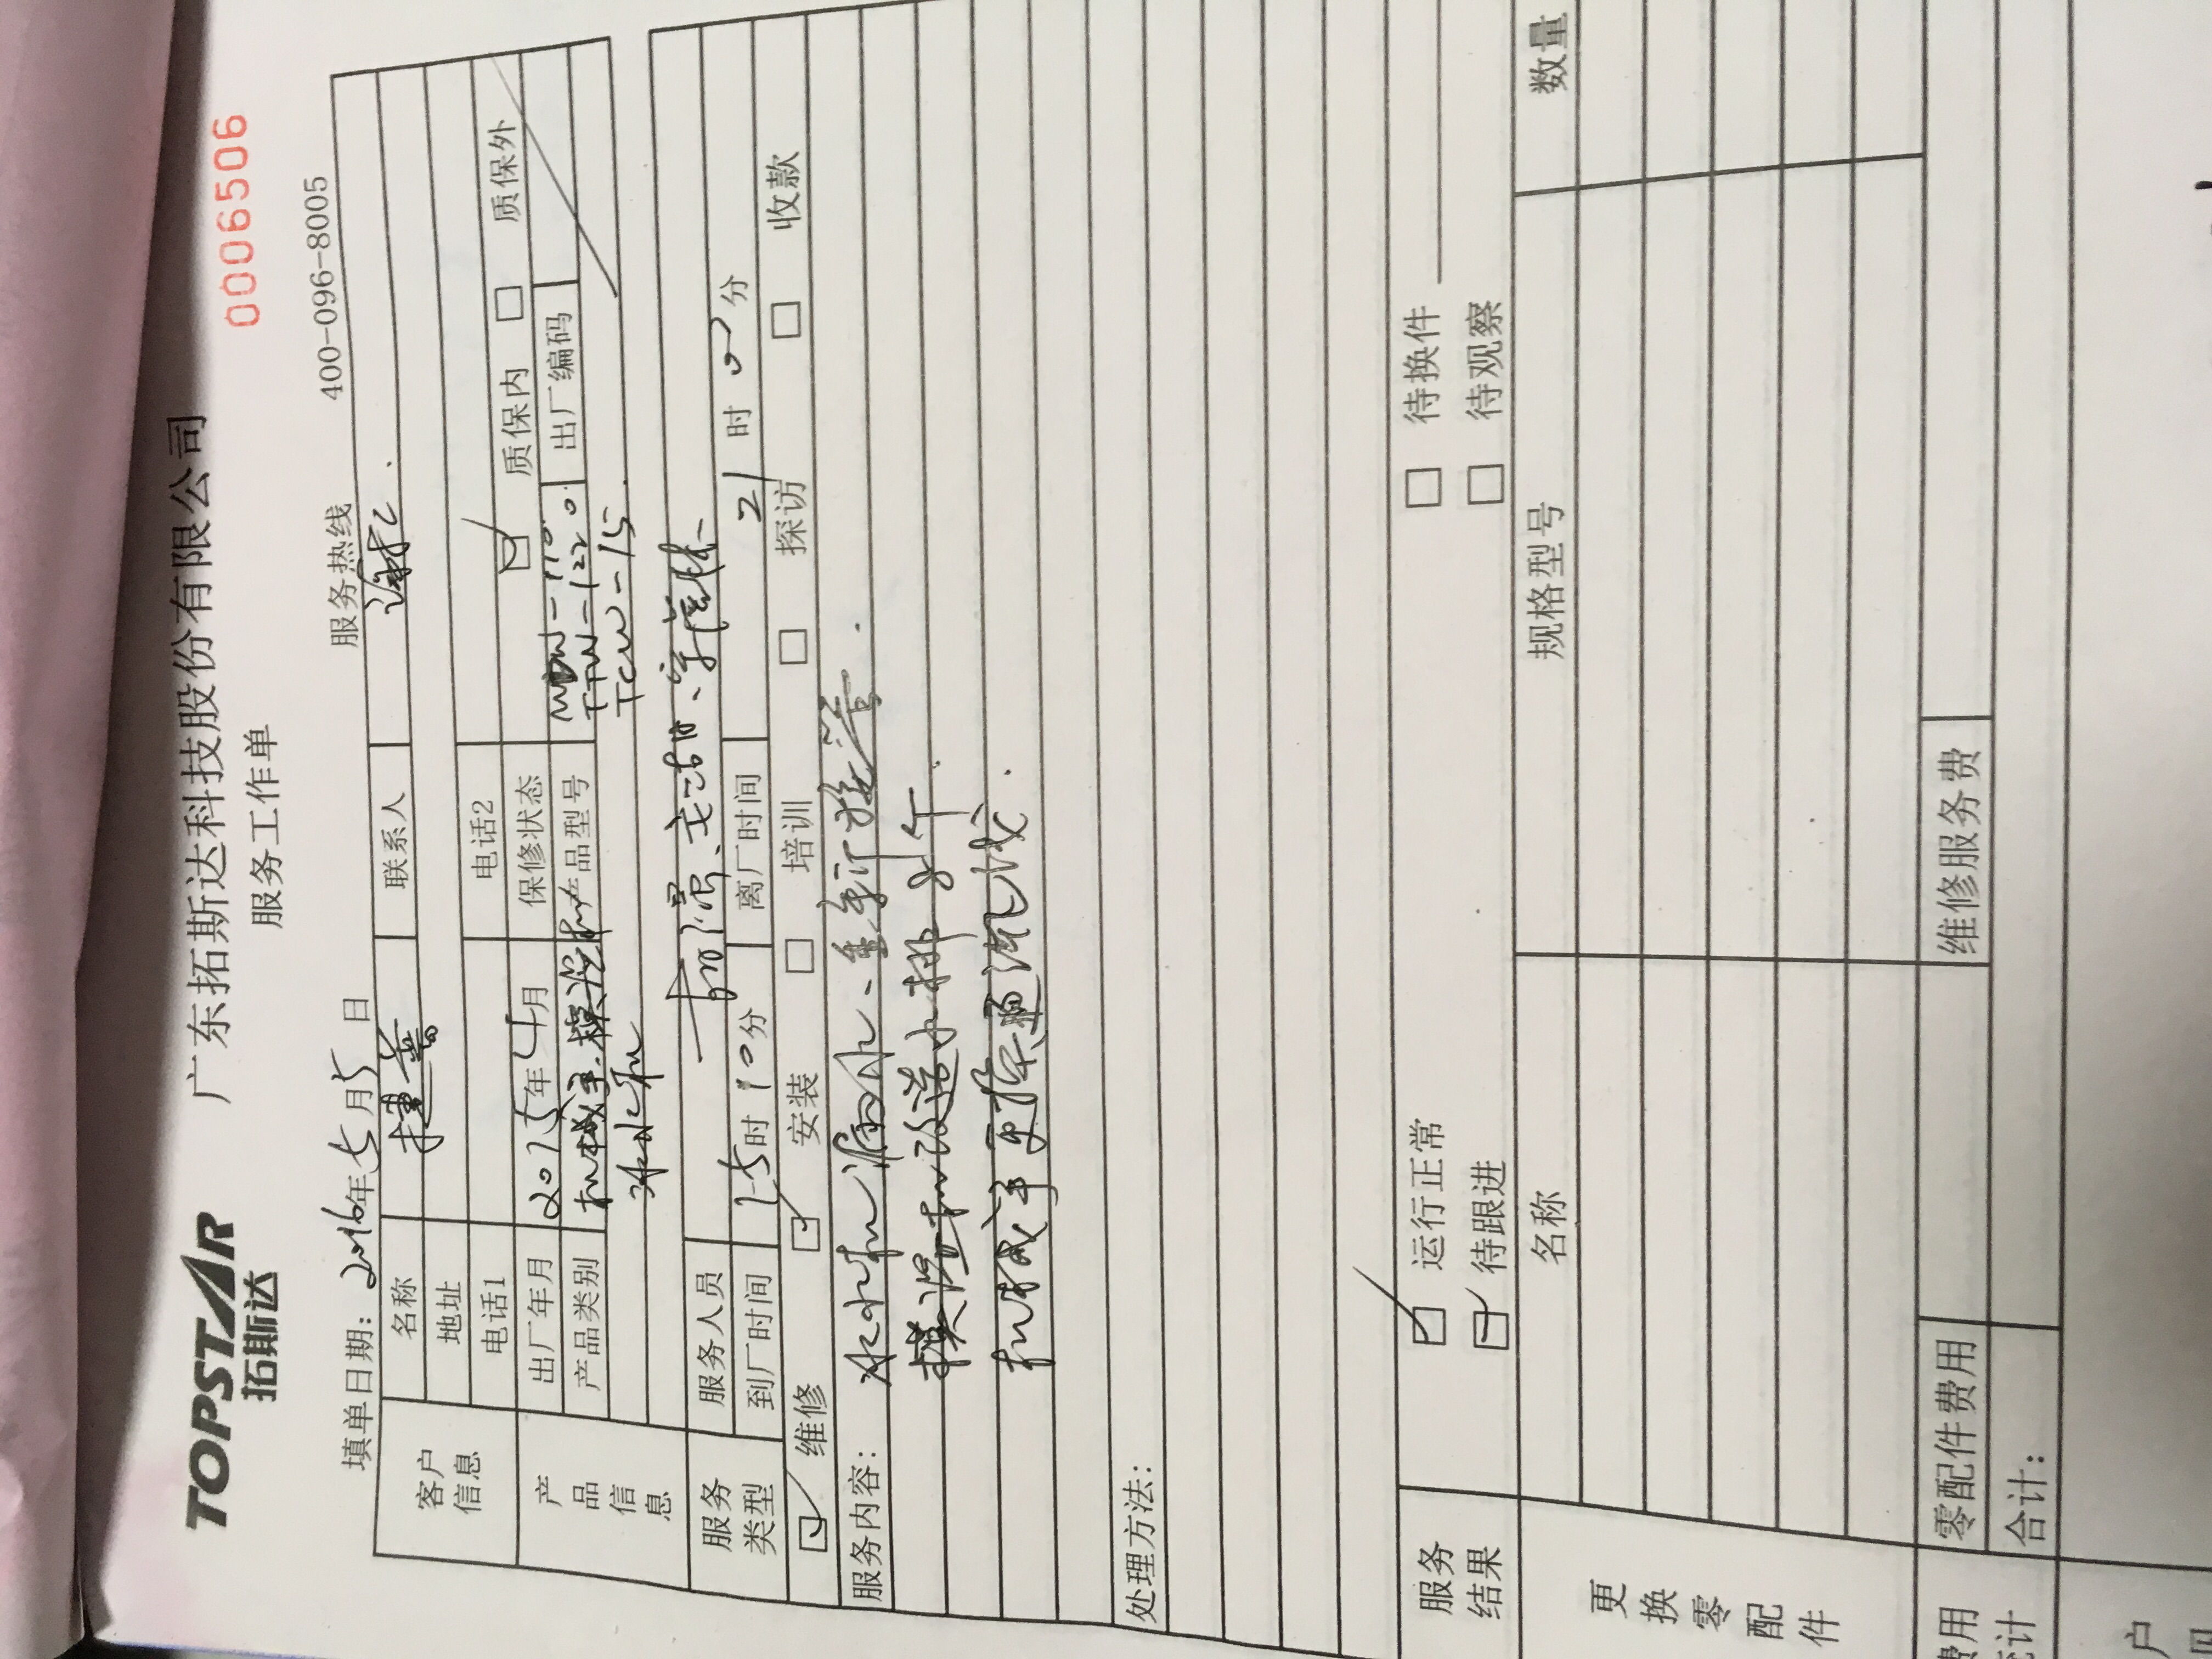 TOPSTAR
拓斯达
广东拓斯达科技股份有限公司
0006506
服务工作单
填单日期：2016年5月5日
服务热线 400-096-8005
客户信息
名称 捷普 联系人
地址
电话1 电话2
产品信息
出厂年月 2015年4月 保修状态 质保内 质保外
产品类别 机械手.模温机 产品型号 TTW-1220 出厂编码
冰水机 TCW-15
服务人员
到厂时间 15时10分 离厂时间 21时 分
服务类型
维修 安装 培训 探访 收款
服务内容： 冰水机漏水、重新接管
模温机改造
机械手更换
处理方法：
服务结果
运行正常 待换件
待跟进 待观察
更换零配件
名称 规格型号 数量
零配件费用 维修服务费
合计：